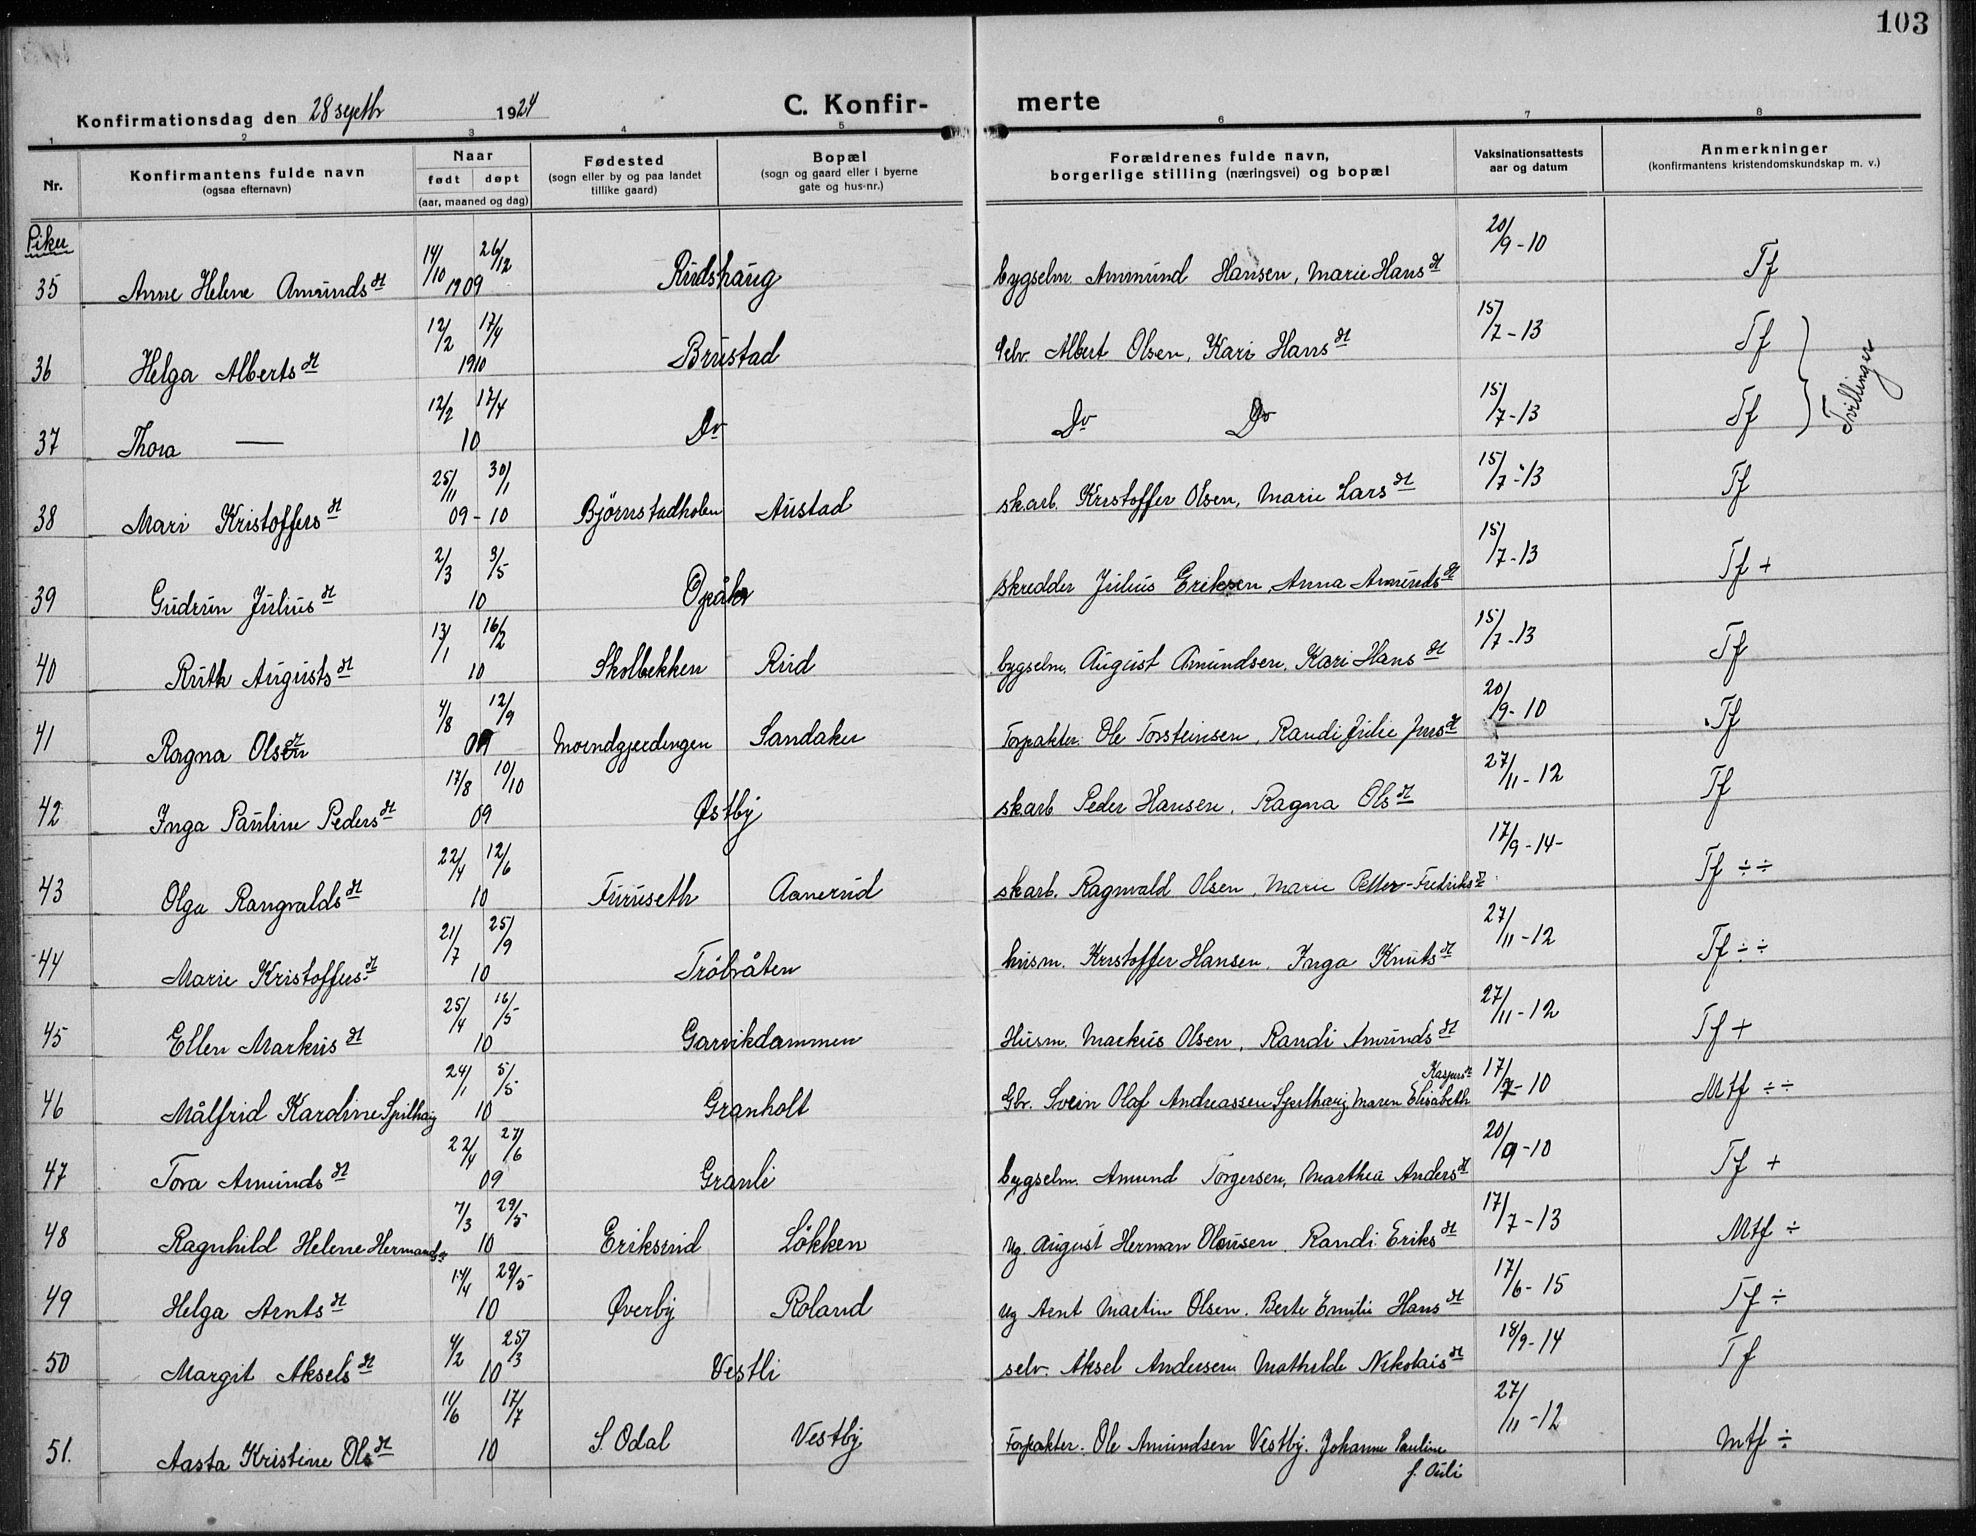 103
Konfirmationsdag den 28 septbr 1924 C. Konfir- merte
1 2 3 4 5 6 7 8
Nr. Konfirmantens fulde navn (ogsaa efternavn) Naar født døpt (aar, maaned og dag) Fødested (sogn eller by og paa landet tillike gaard) Bopæl (sogn og gaard eller i byerne gate og hus-nr.) Forældrenes fulde navn, borgerlige stilling (næringsvei) og bopæl Vaksinationsattests aar og datum Anmerkninger (konfirmantens kristendomskundskap m. v.)
Piker
35 Anne Helene Amundsdt 14/10 26/12 1909 Rudshaug bygselm. Ammund Hansen, Marie Hansdt 20/9-10 Tf
36 Helga Albertsdt 12/2 17/4 1910 Brustad Selv. Albert Olsen, Kari Hansdt 15/7-13 Tf
37 Thora — 12/2 17/4 10 Do Do Do 15/7-13 Tf
Tvillinger
38 Mari Kristoffersdt 25/11 30/1 09-10 Bjørnstadholen Austad skarb. Kristoffer Olsen, Marie Larsdt 15/7-13 Tf
39 Gudrun Juliusdt 2/3 3/5 10 Opåkr skredder Julius Eriksen, Anna Amundsdt 15/7-13 Tf +
40 Ruth Augustsdt 13/1 16/2 10 Skolbekken Rud bygselm. August Amundsen, Kari Hansdt 15/7-13 Tf
41 Ragna Olsdt 4/8 12/9 09 Moendgjerdingen Sandaker Forpakter. Ole Torsteinsen, Randi Julie Jensdt 20/9-10 Tf
42 Inga Pauline Pedersdt 17/8 10/10 09 Østby skarb Peder Hansen, Ragna Olsdt 27/11-12 Tf
43 Olga Rangvaldsdt 22/4 12/6 10 Furuseth Aanerud skarb. Ragnvald Olsen, Marie Petter-Fredriksdt 17/9-14- Tf ÷÷
44 Marie Kristoffersdt 21/7 25/9 10 Tröbråten husm. Kristoffer Hansen, Inga Knutsdt 27/11-12 Tf ÷÷
45 Ellen Markusdt 25/4 16/5 10 Garvikdammen Husm. Markus Olsen, Randi Amundsdt 27/11-12 Tf +
46 Målfrid Karoline Spilhaug 24/1 5/5 10 Granholt Gbr. Svein Olaf Andreassen Spilhaug, Maren Elisabeth Kaspersdt 17/7-10 Mtf ÷÷
47 Tora Amundsdt 22/4 27/6 09 Granli bygselm. Amund Torgersen, Marthea Andersdt 20/9-10 Tf +
48 Ragnhild Helene Hermansdt 7/3 29/5 10 Eriksrud Lökken Ug. August Herman Olausen. Randi Eriksdt 17/7-13 Mtf ÷
49 Helga Arntsdt 14/4 29/5 10 Øverby Roland Ug Arnt Martin Olsen. Berte Emilie Hansdt 17/6-15 Tf ÷
50 Margit Akselsdt 4/2 25/3 10 Vestli selv. Aksel Andersen Mathilde Nikolaisdt 18/9-14 Tf
51. Aasta Kristine Olsdt 11/6 17/7 10 S. Odal Vestby Forpakter. Ole Amundsen Vestby. Johanne Pauline f. Ouli 27/11-12 Mtf ÷